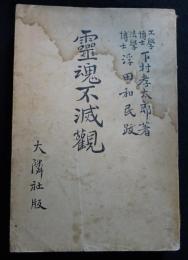 工學博士 下村孝太郎著
法學博士 浮田和民跋
靈魂不滅觀
大隣社版